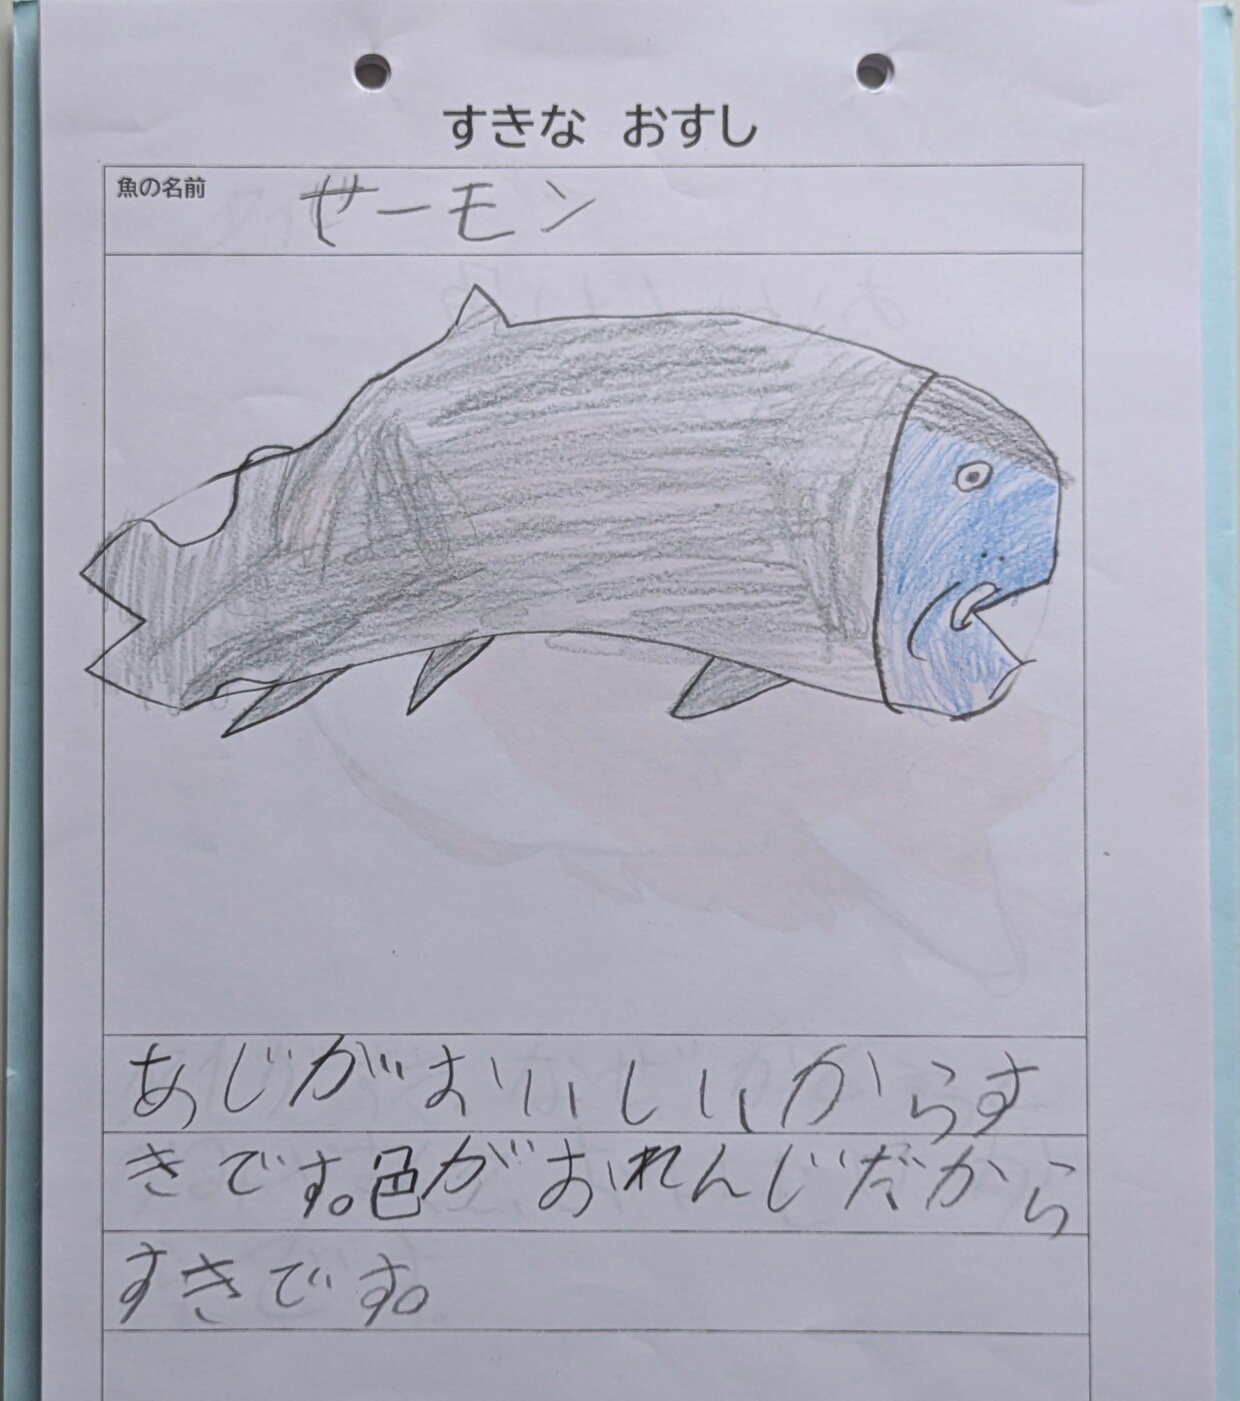 すきな おすし
魚の名前
サーモン
あじがおいしいからす
きです。色がおれんじだから
すきです。